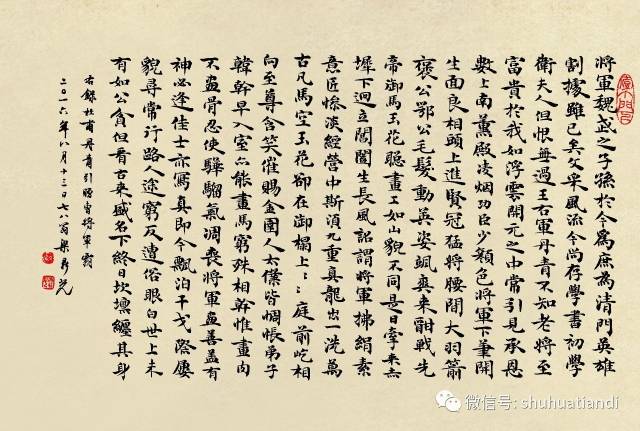 將軍魏武之子孫於今為庶為清門英雄
割據雖已矣文采風流今尚存學書初學
衛夫人但恨無過王右軍丹青不知老將至
富貴於我如浮雲開元之中常引見承恩
數上南薰殿凌烟功臣少顏色將軍下筆開
生面良相頭上進賢冠猛將腰間大羽箭
褒公鄂公毛髮動英姿颯爽來酣戰先
帝御馬玉花驄畫工如山貌不同是日牽來赤
墀下迥立閶闔生長風詔謂將軍拂絹素
意匠慘淡經營中斯須九重真龍出一洗萬
古凡馬空玉花卻在御榻上〻〻庭前屹相
向至尊含笑催賜金圉人太僕皆惆悵弟子
韓幹早入室亦能畫馬窮殊相幹惟畫肉
不畫骨忍使驊騮氣凋喪將軍畫善蓋有
神必逢佳士亦寫真即今飄泊干戈際屢
貌尋常行路人途窮反遭俗眼白世上未
有如公貧但看古來盛名下終日坎壈纏其身
右錄杜甫丹青引贈曹將軍霸
二〇一六年八月十三日七八翁梁光
微信号: shuhuatiandi